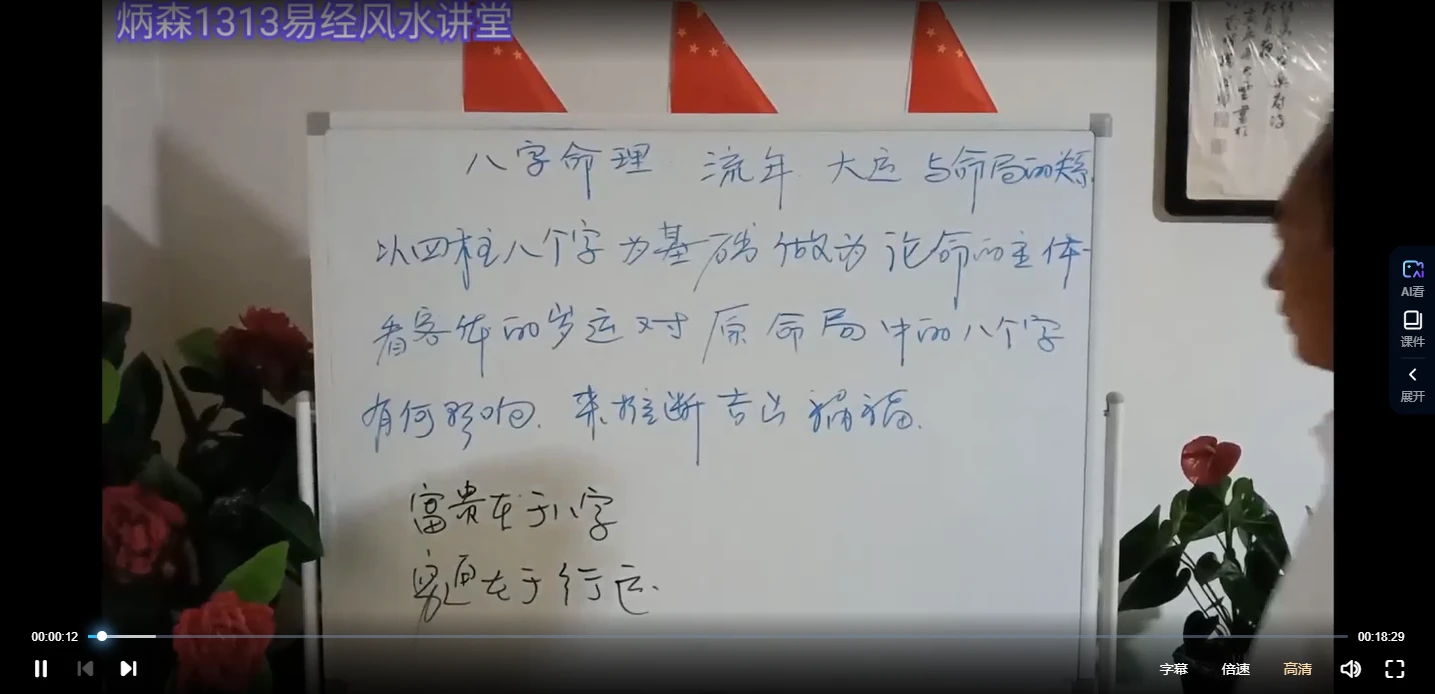 炳森1313易经风水讲堂
八字命理 流年 大运 与命局的关系
以四柱八个字为基础做为论命的主体
看客体的岁运对原命局中的八个字
有何影响.来推断吉凶祸福.
富贵在于八字
穷通在于行运.
AI看
课件
展开
00:00:12
00:18:29
字幕
倍速
高清